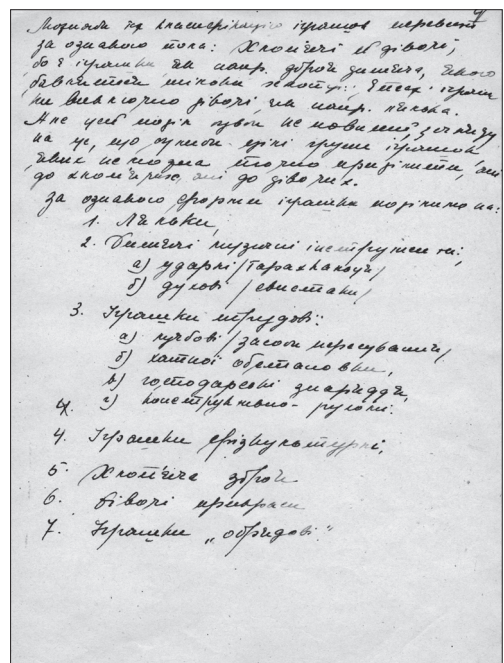 Можна би кляси­фікацію іграшок перевести
за ознакою пола: Хлоп'ячі й дівочі,
бо є іграшки як напр. дитяча
бавляться тільки хлопці. Є теж іграшки
виключно дівочі як напр. лялька.
Але цей поділ був би не повний, з огляду
на це, що существ цілі групи іграшок,
яких не можна точно приділити, ані
до хлоп'ячих, ані до дівочих.
за ознакою форми іграшки поділимо на:
1. Ляльки,
2. Дитячі музичні інструменти:
а) ударні /тарахкальця/
б) духові /свистали/
3. Іграшки
а) /засоби пересування/,
б) хатньої обстановки,
в) господарські знаряддя,
г) конструктивно- рухомі.
4. Іграшки фізкультурні,
5. Хлоп'яча зброя
6. Дівочі прикраси
7. Іграшки „обрядові"